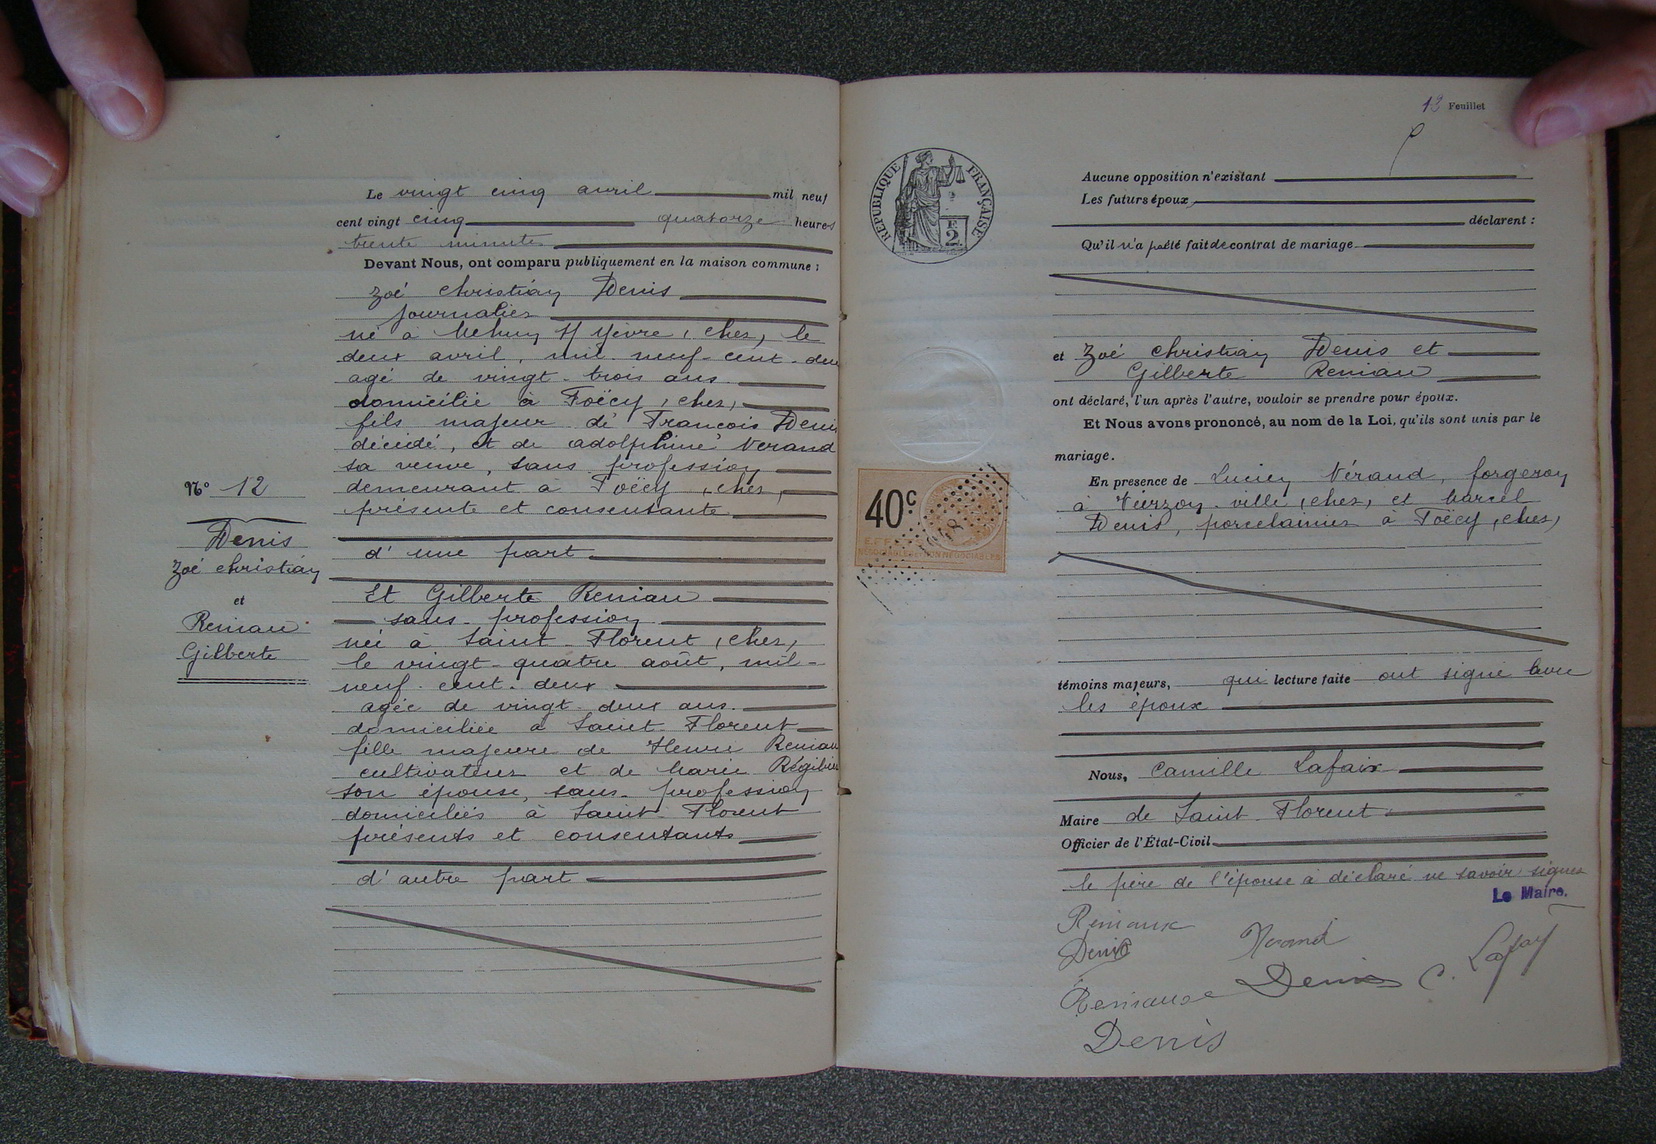 Le vingt cinq avril mil neuf
cent vingt cinq quatorze heures
trente minutes
Devant Nous, ont comparu publiquement en la maison commune :
Zoé Christian Denis
journalier
né à Mehun s/ Yèvre, Cher, le
deux avril, mil neuf-cent-deux
agé de vingt-trois ans
domicilié à Foëcy, Cher,
fils majeur de François Denis
décédé, et de Adolphine Verand
sa veuve, sans profession
demeurant à Foëcy, Cher,
présente et consentante
d'une part
Et Gilberte Reniau
sans profession
née à Saint-Florent, Cher,
le vingt-quatre août, mil-
neuf-cent-deux
agée de vingt-deux ans
domiciliée à Saint-Florent
fille majeure de Henri Reniau
cultivateur et de Marie
son épouse, sans profession
domiciliés à Saint-Florent
présents et consentants
d'autre part
N° 12
Denis
Zoé Christian
et
Reniau
Gilberte
13 Feuillet
RÉPUBLIQUE FRANÇAISE
2
40c
Aucune opposition n'existant
Les futurs époux
déclarent :
Qu'il n'a pas été fait de contrat de mariage
et Zoé Christian Denis et
Gilberte Reniau
ont déclaré, l'un après l'autre, vouloir se prendre pour époux.
Et Nous avons prononcé, au nom de la Loi, qu'ils sont unis par le
mariage.
En presence de Lucien Vérand, forgeron
à Vierzon-ville, Cher, et Marcel
Denis, porcelainier à Foëcy, Cher,
témoins majeurs, qui lecture faite ont signé avec
les époux
Nous, Camille Lafaix
Maire de Saint-Florent
Officier de l'État-Civil
le père de l'épouse a déclaré ne savoir signer
Le Maire.
Reniaux
Denis
Verand
Denis
C. Lafaix
Denis